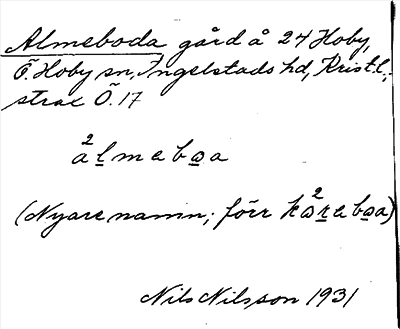 Almeboda gård å 24 Hoby,
Ö. Hoby sn, Ingelstads hd, Krist.l.;
strax Ö. 17
²almebωa
(Nyare namn; förr kω²rebωa)
Nils Nilsson 1931